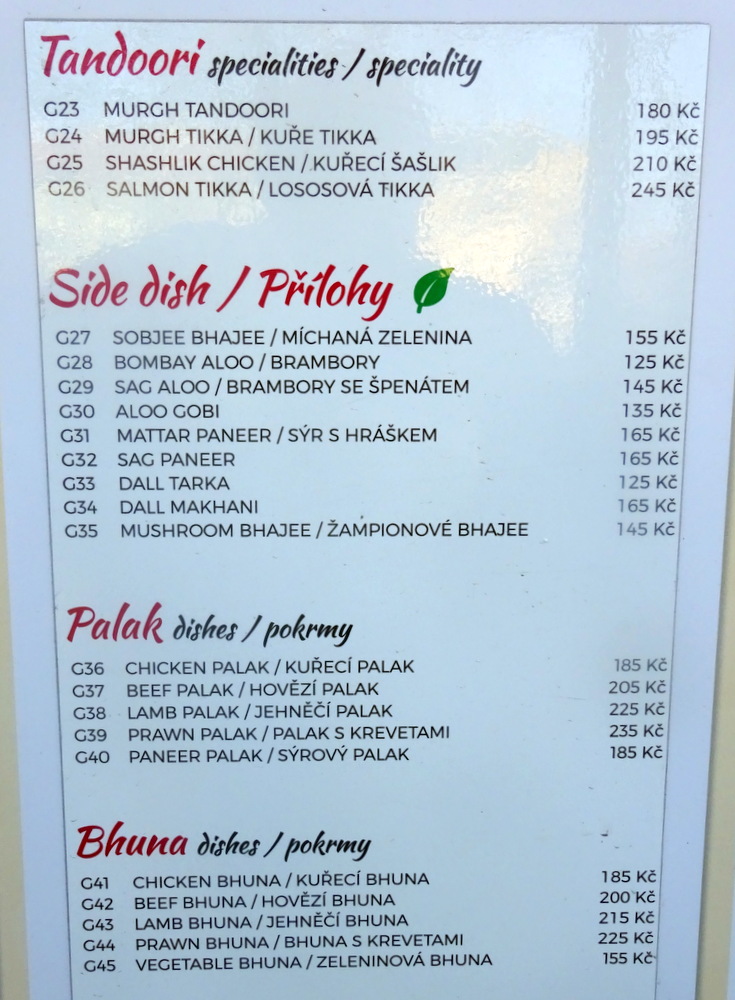 Tandoori specialities / speciality
G23 MURGH TANDOORI 180 Kč
G24 MURGH TIKKA / KUŘE TIKKA 195 Kč
G25 SHASHLIK CHICKEN / KUŘECÍ ŠAŠLIK 210 Kč
G26 SALMON TIKKA / LOSOSOVÁ TIKKA 245 Kč
Side dish / Přílohy
G27 SOBJEE BHAJEE / MÍCHANÁ ZELENINA 155 Kč
G28 BOMBAY ALOO / BRAMBORY 125 Kč
G29 SAG ALOO / BRAMBORY SE ŠPENÁTEM 145 Kč
G30 ALOO GOBI 135 Kč
G31 MATTAR PANEER / SÝR S HRÁŠKEM 165 Kč
G32 SAG PANEER 165 Kč
G33 DALL TARKA 125 Kč
G34 DALL MAKHANI 165 Kč
G35 MUSHROOM BHAJEE / ŽAMPIONOVÉ BHAJEE 145 Kč
Palak dishes / pokrmy
G36 CHICKEN PALAK / KUŘECÍ PALAK 185 Kč
G37 BEEF PALAK / HOVĚZÍ PALAK 205 Kč
G38 LAMB PALAK / JEHNĚČÍ PALAK 225 Kč
G39 PRAWN PALAK / PALAK S KREVETAMI 235 Kč
G40 PANEER PALAK / SÝROVÝ PALAK 185 Kč
Bhuna dishes / pokrmy
G41 CHICKEN BHUNA / KUŘECÍ BHUNA 185 Kč
G42 BEEF BHUNA / HOVĚZÍ BHUNA 200 Kč
G43 LAMB BHUNA / JEHNĚČÍ BHUNA 215 Kč
G44 PRAWN BHUNA / BHUNA S KREVETAMI 225 Kč
G45 VEGETABLE BHUNA / ZELENINOVÁ BHUNA 155 Kč